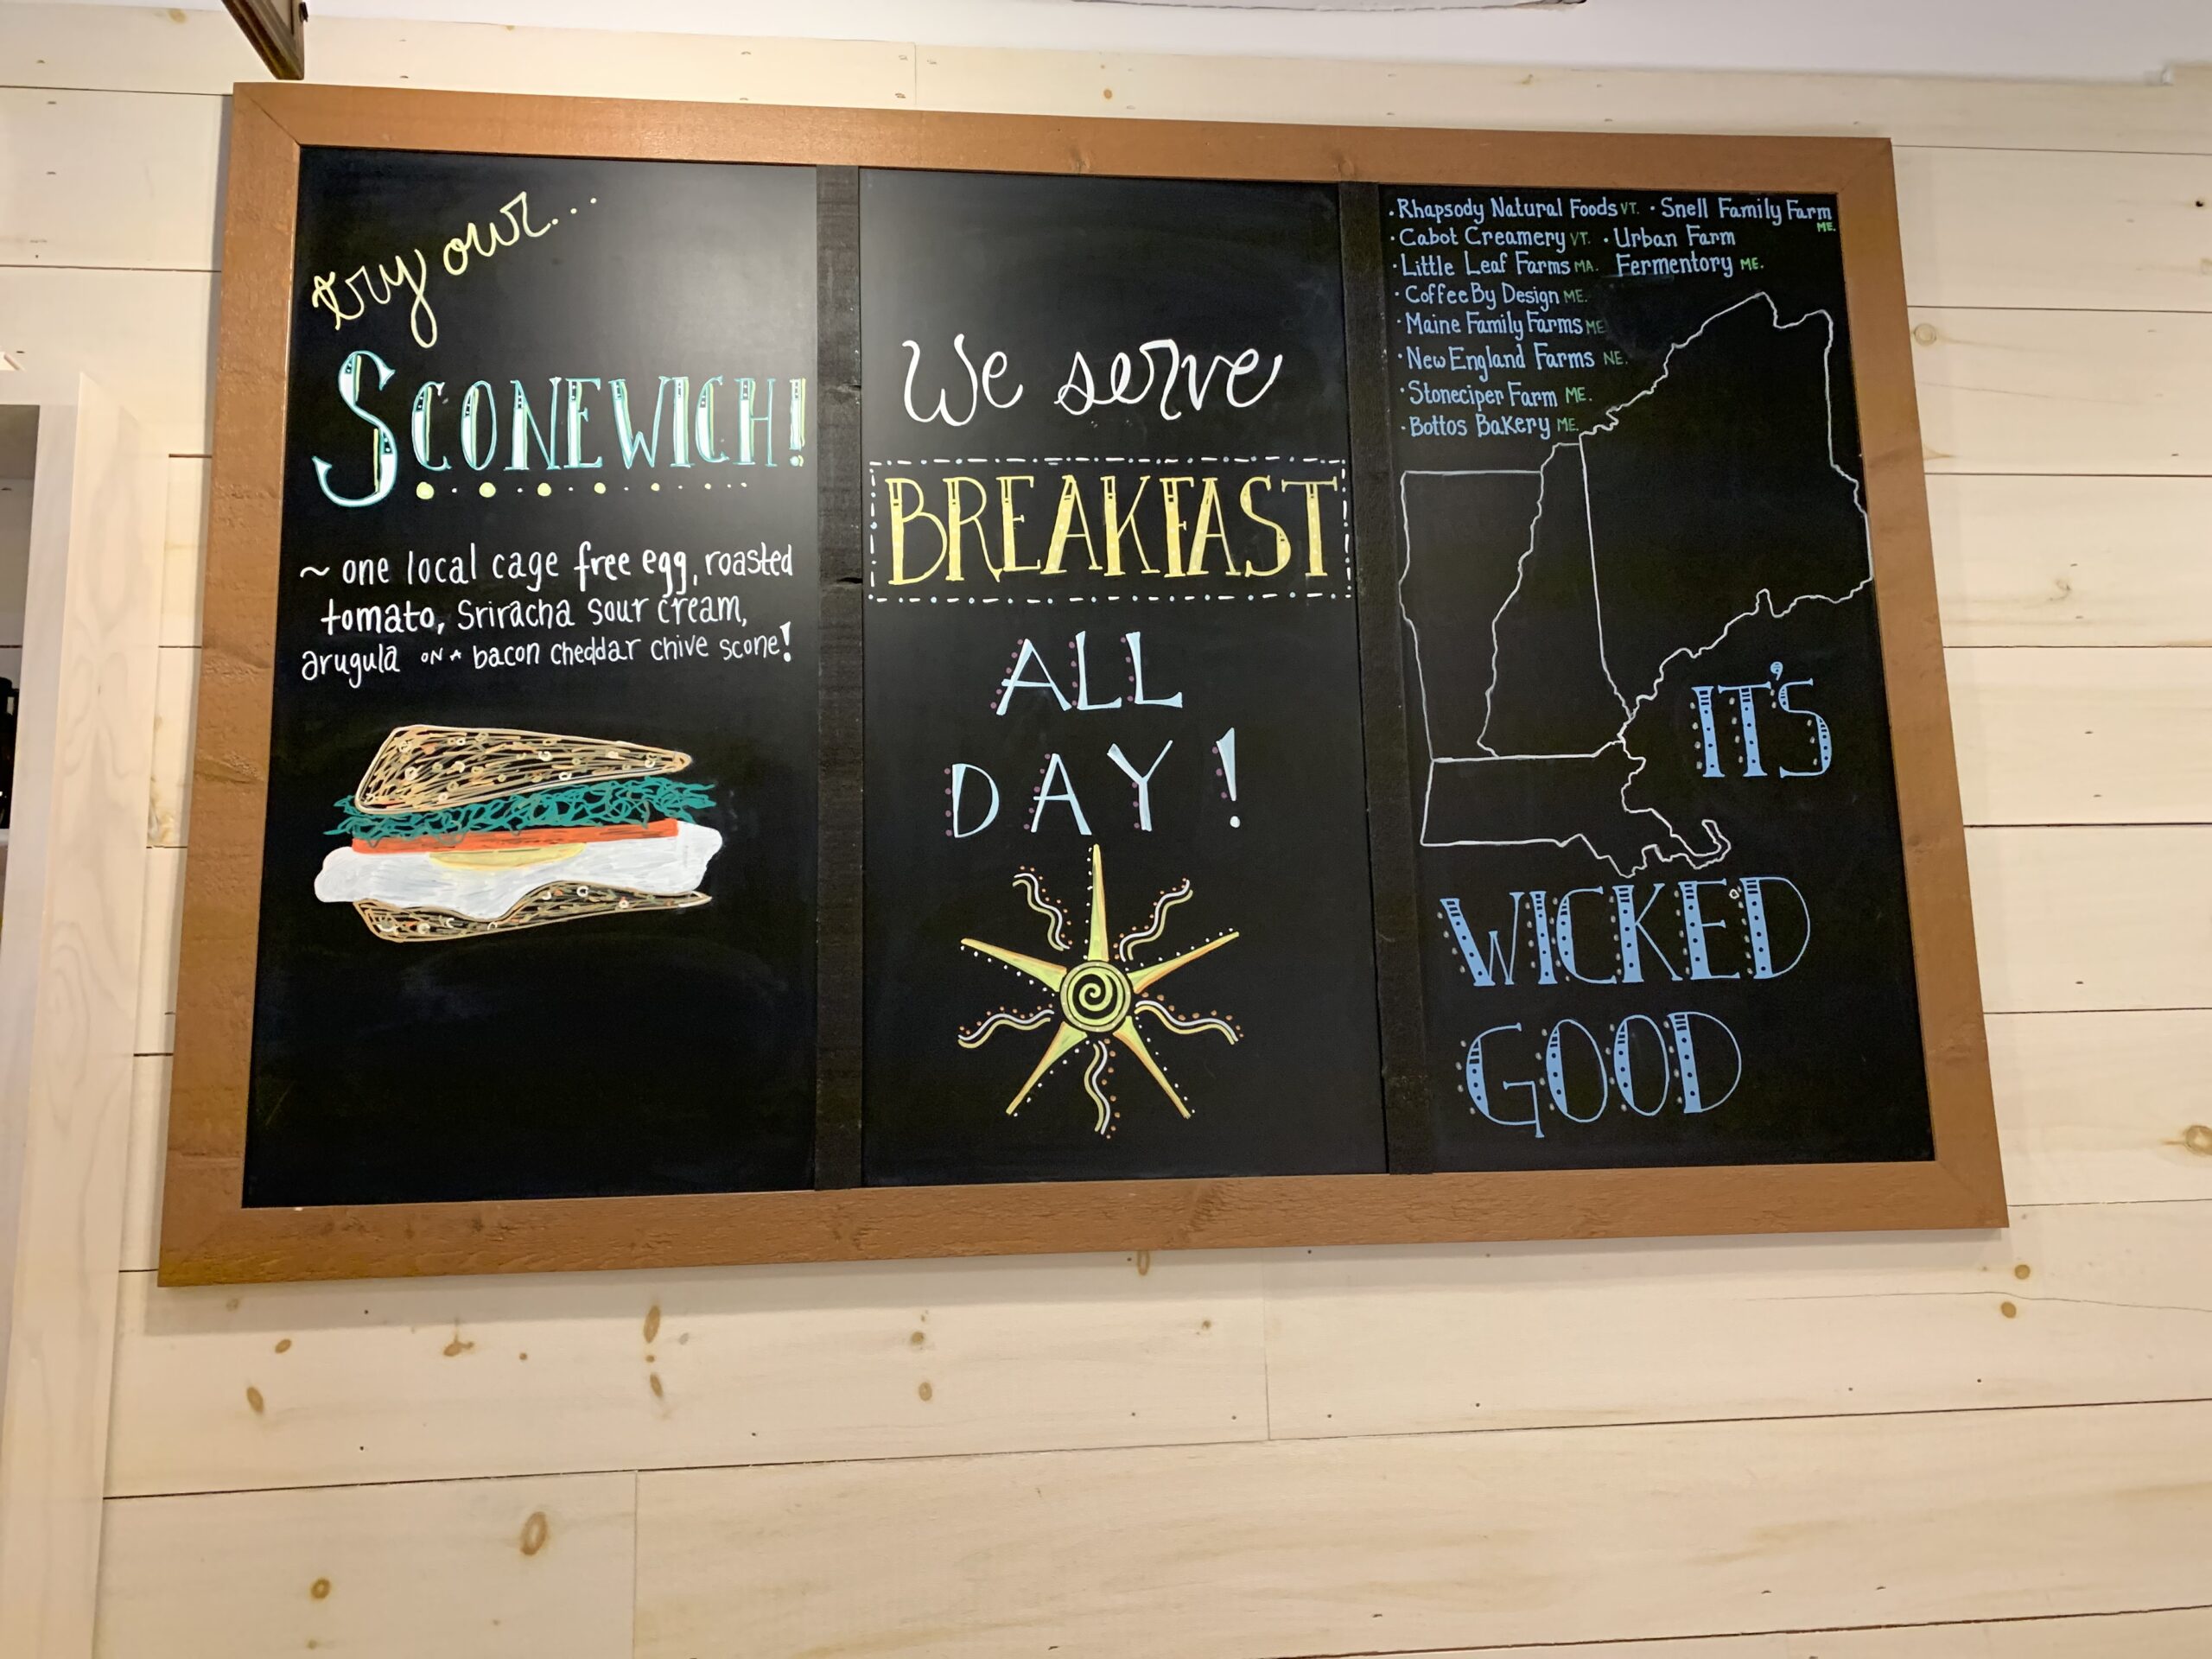 try our...
SCONEWICH!
~ one local cage free egg, roasted
tomato, Sriracha sour cream,
arugula ON A bacon cheddar chive scone!
We serve
BREAKFAST
ALL
DAY!
· Rhapsody Natural Foods VT.
· Cabot Creamery VT.
· Little Leaf Farms MA.
· Coffee By Design ME.
· Maine Family Farms ME
· New England Farms NE.
· Stoneciper Farm ME.
· Bottos Bakery ME.
· Snell Family Farm
ME.
· Urban Farm
Fermentory ME.
IT'S
WICKED
GOOD